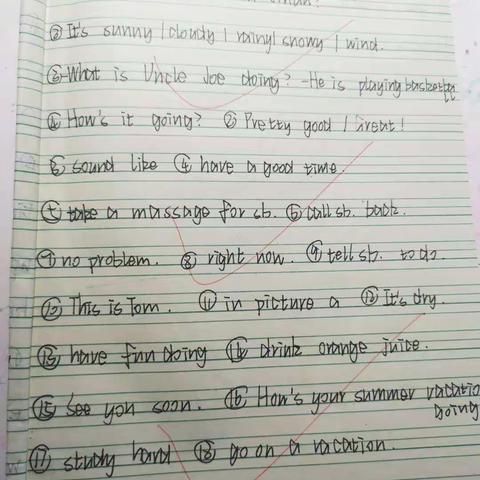 ② It's sunny / cloudy / rainy / snowy / wind.
③ -What is Uncle Joe doing? -He is playing basketball
① How's it going? ② Pretty good / Great!
③ sound like ④ have a good time.
⑤ take a massage for sb. ⑥ call sb. back.
⑦ no problem. ⑧ right now. ⑨ tell sb. to do
⑩ This is Tom. ⑪ in picture a ⑫ It's dry.
⑬ have fun doing ⑭ drink orange juice.
⑮ see you soon. ⑯ How's your summer vacatio
going
⑰ study hard ⑱ go on a vacation.